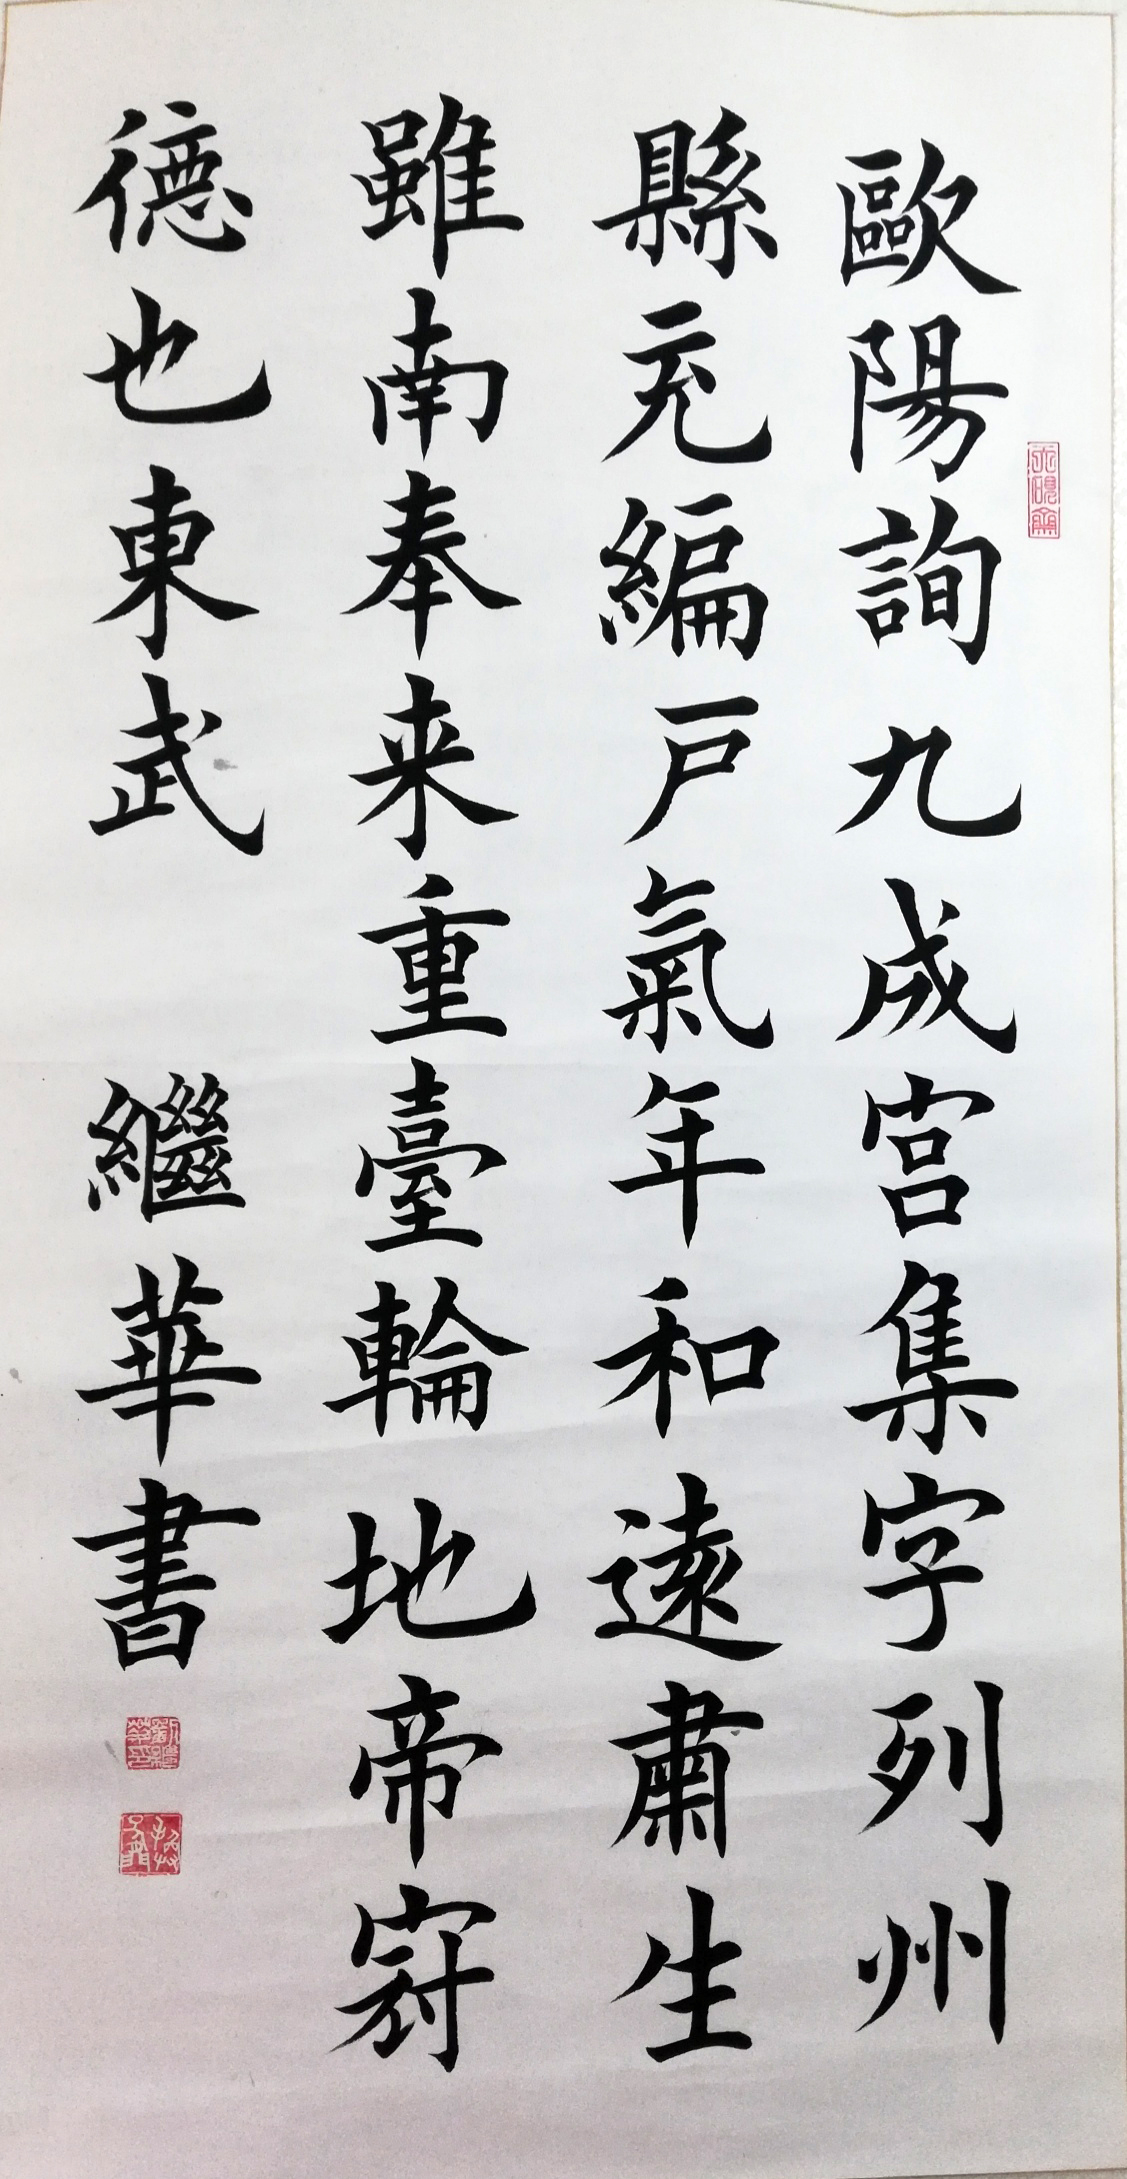 歐陽詢九成宮集字列州
縣充編戸氣年和遠肅生
雖南奉来重臺輪地帝冠
德也東武 繼華書